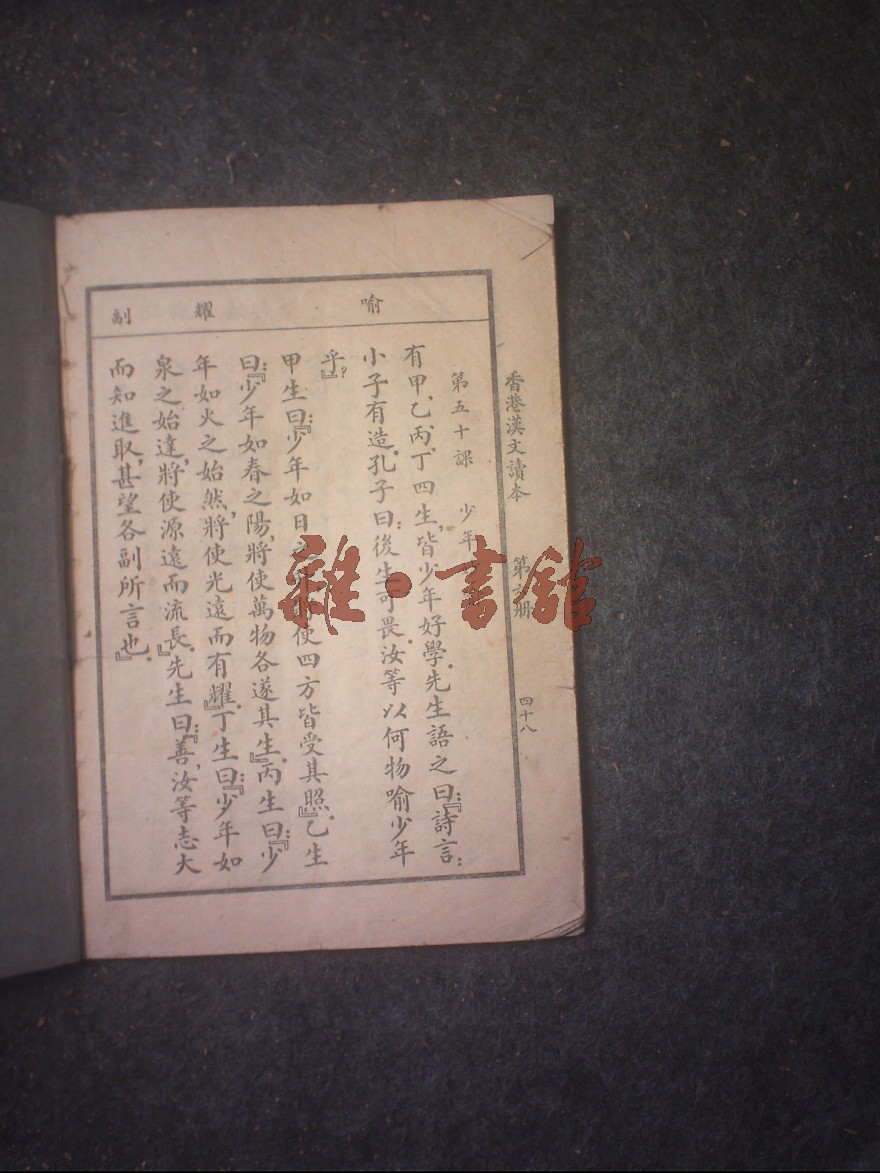 香港漢文讀本 第六册 四十八
喻 耀 副
第五十課 少年
有甲、乙、丙、丁四生,皆少年好學。先生語之曰:『詩言:
小子有造。孔子曰:後生可畏。汝等以何物喻少年
乎?』
甲生曰:『少年如日 使四方皆受其照。』乙生
曰:『少年如春之陽,將使萬物各遂其生。』丙生曰:『少
年如火之始然,將使光遠而有耀。』丁生曰:『少年如
泉之始達,將使源遠而流長。』先生曰:『善,汝等志大
而知進取,甚望各副所言也。』
雜·書館